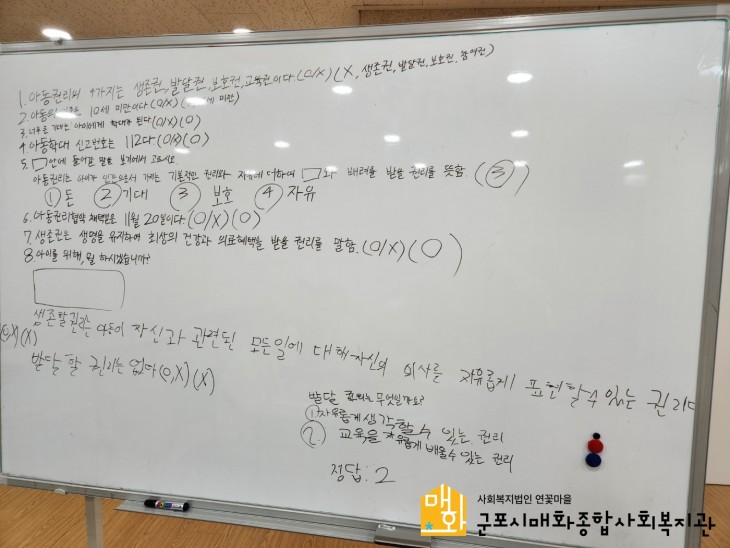 1. 아동권리의 4가지는 생존권, 발달권, 보호권, 교육권이다.(O/X)(X, 생존권, 발달권, 보호권, 참여권)
2. 아동의 10세 미만이다.(O/X)( 세 미만)
3. 너무큰 기대는 아이에게 학대가 된다(O/X)(O)
4. 아동학대 신고번호는 112다(O/X)(O)
5. □안에 들어갈 말을 보기에서 고르시오
아동권리는 아이가 인간으로서 가지는 기본적인 권리와 자유에 더하여 □와 배려를 받을 권리를 뜻함. (③)
① 돈 ② 기대 ③ 보호 ④ 자유
6. 아동권리협약 채택일은 11월 20일이다.(O/X)(O)
7. 생존권은 생명을 유지하여 최상의 건강과 의료혜택을 받을 권리를 말함.(O/X)(O)
8. 아이를 위해, 뭘 하시겠습니까?
생존할권리는 아동이 자신과 관련된 모든일에 대해 자신의 의사를 자유롭게 표현할수 있는 권리다
(O,X)(X)
발달 할 권리는 없다(O,X)(X)
발달 권리는 무엇일까요?
1. 자유롭게 생각할 수 있는 권리
②. 교육을 자유롭게 배울수 있는 권리
정답: 2
매화
사회복지법인 연꽃마을
군포시매화종합사회복지관